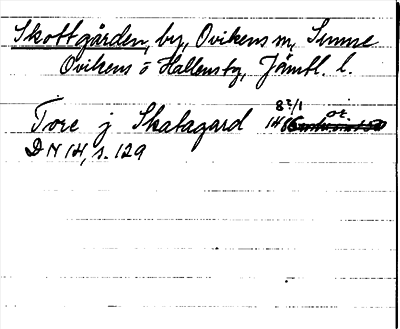 Skottgården, by, Ovikens sn,
Ovikens o Hallens tg, Jämtl. l.
Tore j Skatagard 8?/1 1486 or.
DN 14, s. 129